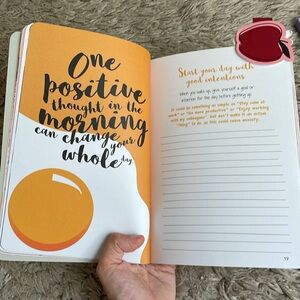 One
positive
thought in the
morning
can change your
whole day
Start your day with
good intentions
When you wake up, give yourself a goal or
intention for the day before getting up.
It could be something as simple as "stay calm at
work" or "be more productive" or "Enjoy working
with my colleagues", but don't make it an action
"thing" to do, as this could cause anxiety.